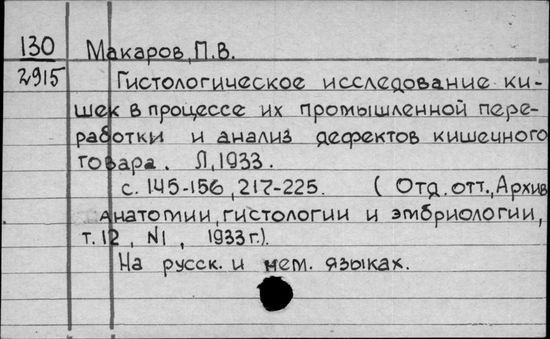 130
2915
Макаров, П.В.
Гистологическое исследование ки-
шек в процессе их промышленной пере-
работки и анализ дефектов кишечного
товара. Л, 1933.
с. 145-156, 217-225. (Отд. отт., Архив
анатомии, гистологии и эмбриологии,
т. 12, N1, 1933 г.).
На русск. и нем. языках.